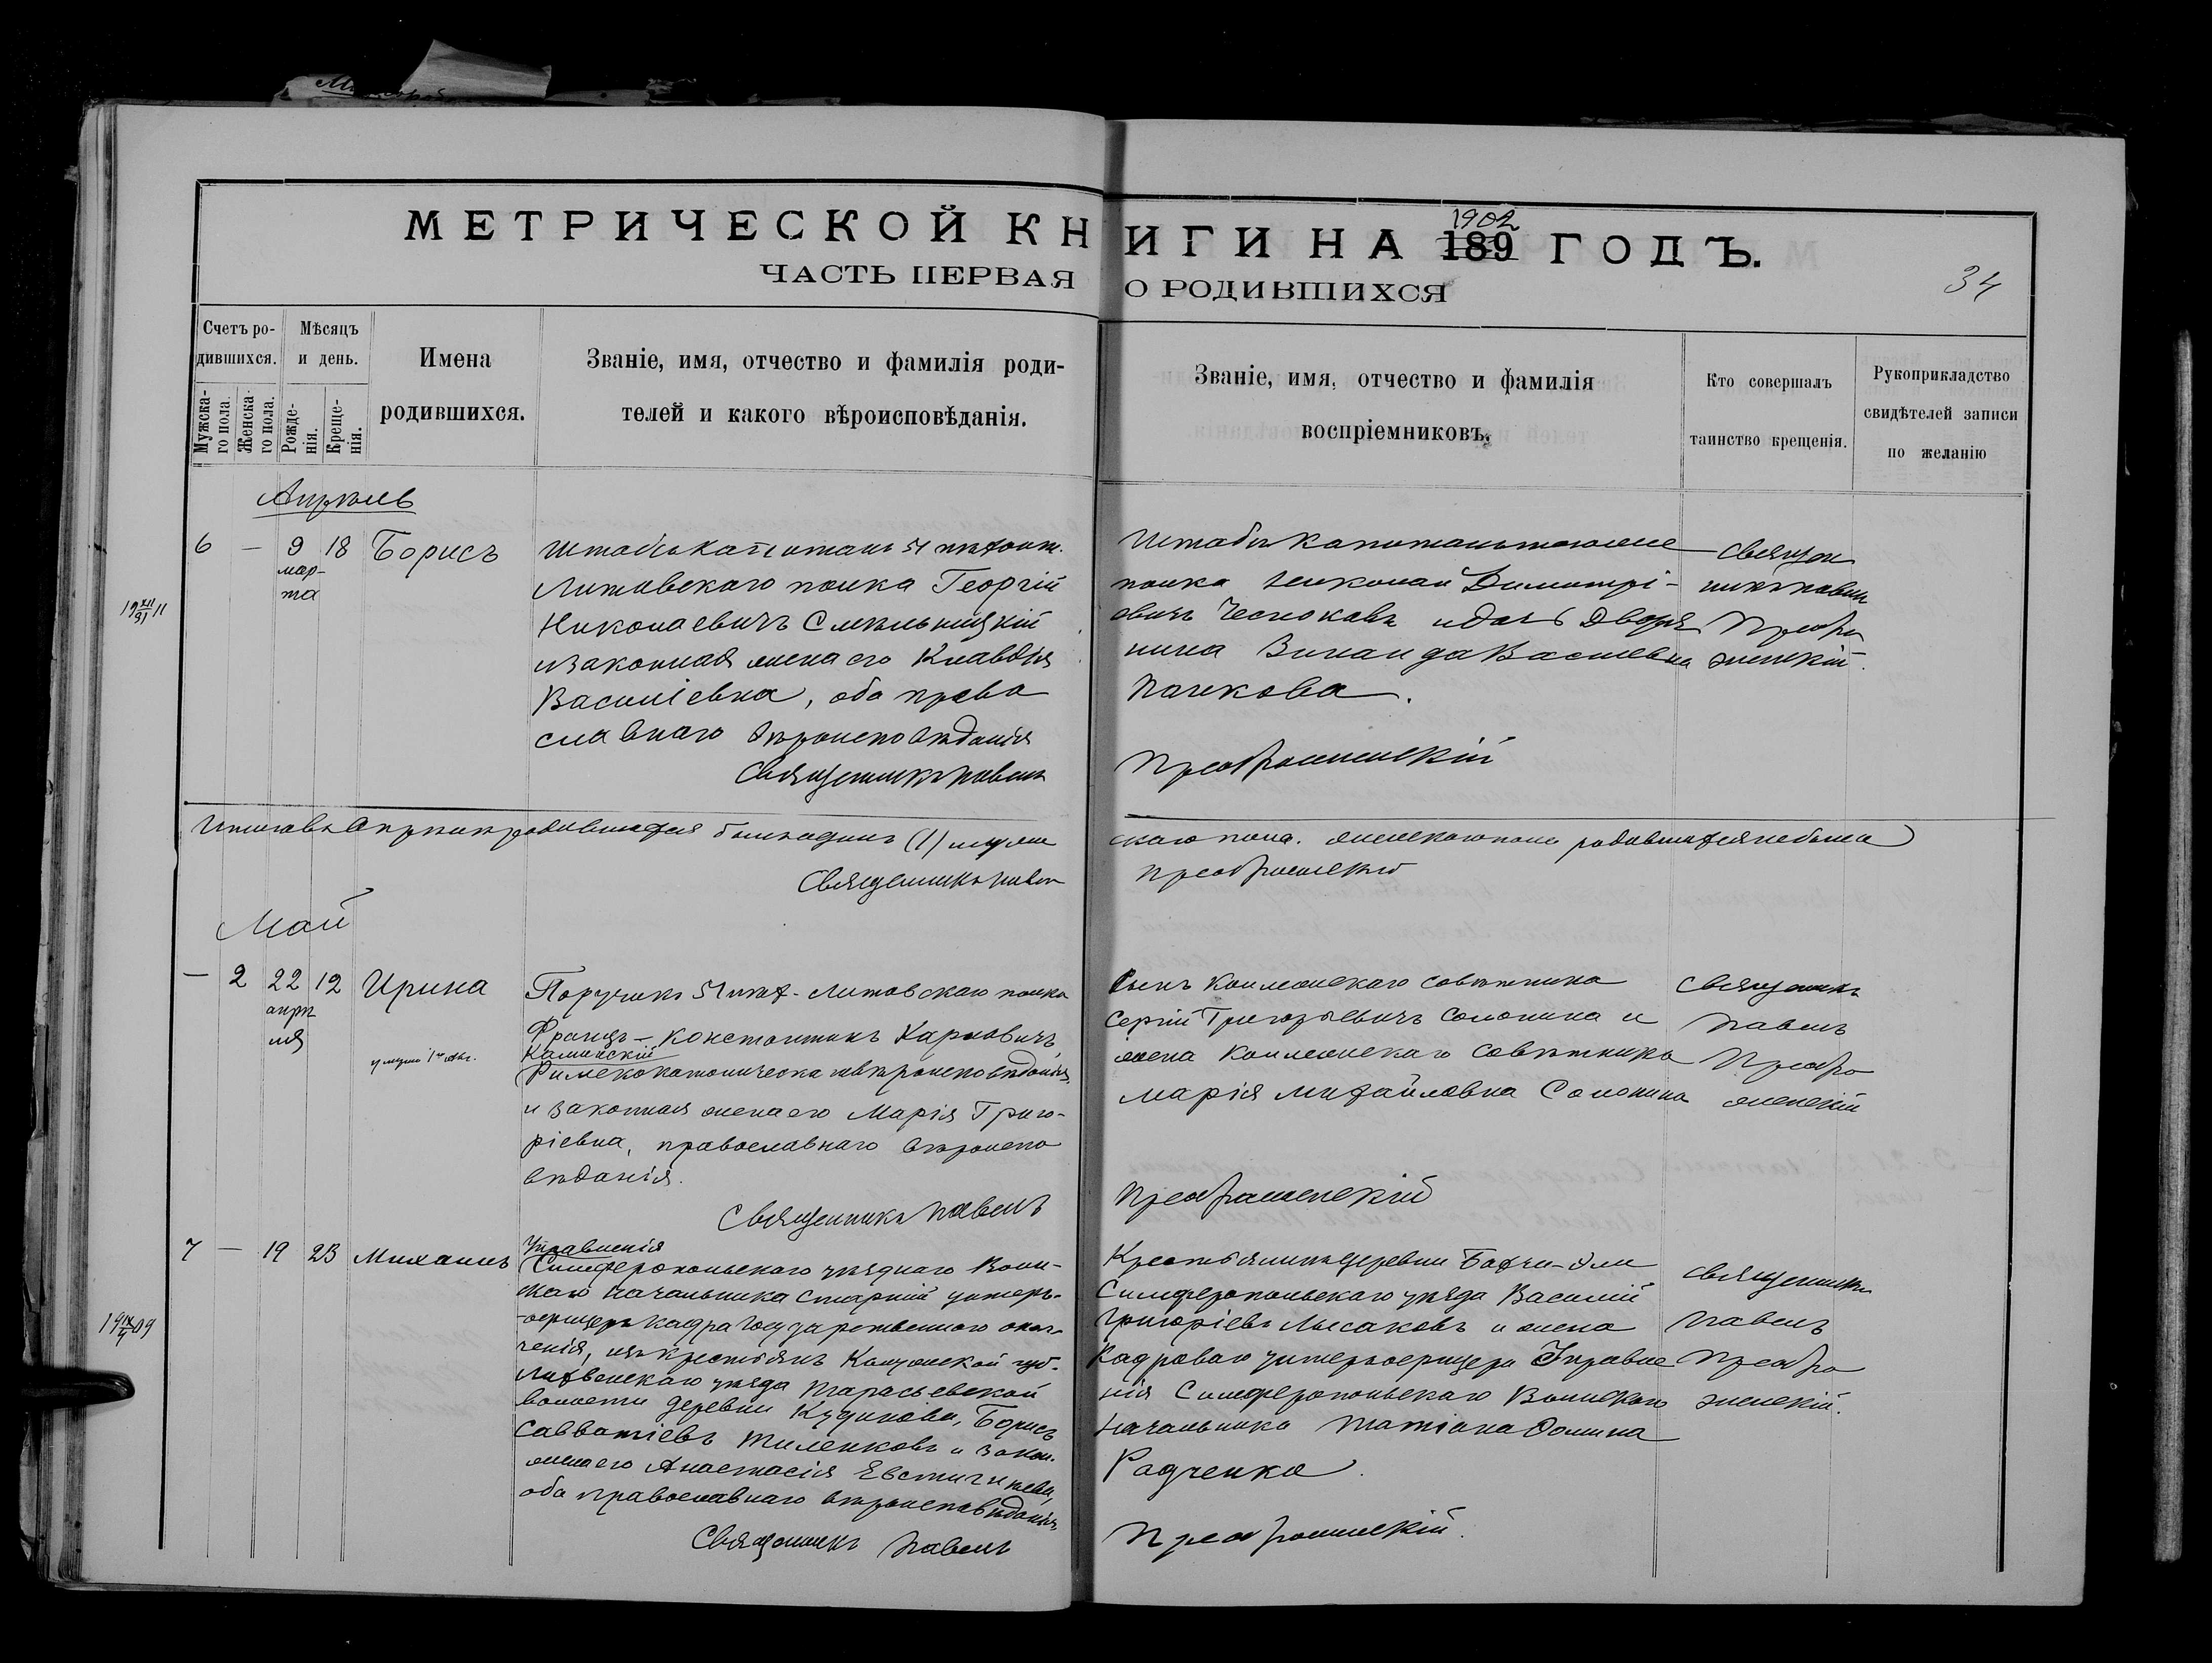 МЕТРИЧЕСКОЙ КНИГИ НА 189 ГОДЪ.
1902
ЧАСТЬ ПЕРВАЯ О РОДИВШИХСЯ
34
Счетъ ро-
дившихся.
Мужска-
го пола.
Женска-
го пола.
Мѣсяцъ
и день.
Рожде-
нія.
Креще-
нія.
Имена
родившихся.
Званіе, имя, отчество и фамилія роди-
телей и какого вѣроисповѣданія.
Званіе, имя, отчество и фамилія
воспріемниковъ.
Кто совершалъ
таинство крещенія.
Рукоприкладство
свидѣтелей записи
по желанію
Апрѣль
6 — 9 18 Борисъ
мар-
та
Штабсъ капитанъ 51 пѣхотн.
Литовскаго полка Георгій
Николаевичъ Смѣльницкій
и законная жена его Клавдія
Василіевна, оба право
славнаго вѣроисповѣданія
Священникъ Павелъ
Штабсъ капитанъ того же
полка Николай Димитрі-
евичъ Чесноковъ и дочь Дворя
нина Зинаида Василевна
Панкова.
Преображенскій
Священ
никъ Павелъ
Преобра
женскій.
Итого въ Апрѣлѣ родившихся былъ одинъ (1) муже
скаго пола. женскаго пола родившихся не было
Священникъ Павелъ
Преображенскій
Май
— 2 22 12 Ирина
апрѣ
ля
Поручикъ 51 пѣх. Литовскаго полка
Францъ-Константинъ Карловичъ
Каминскій
Римскокатолическаго вѣроисповѣданія,
и законная жена его Марія Григо-
ріевна, православнаго вѣроиспо
вѣданія.
Священникъ Павелъ
Сынъ Коллежскаго совѣтника
Сергій Григоріевичъ Солонина и
жена Коллежскаго Совѣтника
Марія Михайловна Солонина
Преображенскій
Священникъ
Павелъ
Преобра
женскій
7 — 19 23 Михаилъ
Управленія
Симферопольскаго уѣзднаго Воин-
скаго Начальника Старшій унтеръ-
-офицеръ кадра Государственнаго опол-
ченія, изъ крестьянъ Калужской губ.
Лихвенскаго уѣзда
волости деревни Кудинова, Борисъ
Савватіевъ Тиленковъ и закон.
жена его Анастасія Евстигнѣева,
оба православнаго вѣроисповѣданія,
Священникъ Павелъ
Крестьянинъ деревни Бахчи-Эли
Симферопольскаго уѣзда Василій
Григоріевъ Лысаковъ и жена
Кадроваго унтеръ офицера Управле
нія Симферопольскаго Воинскаго
Начальника Татіана Домина
Радченко.
Преображенскій.
Священникъ
Павелъ
Преобра
женскій.